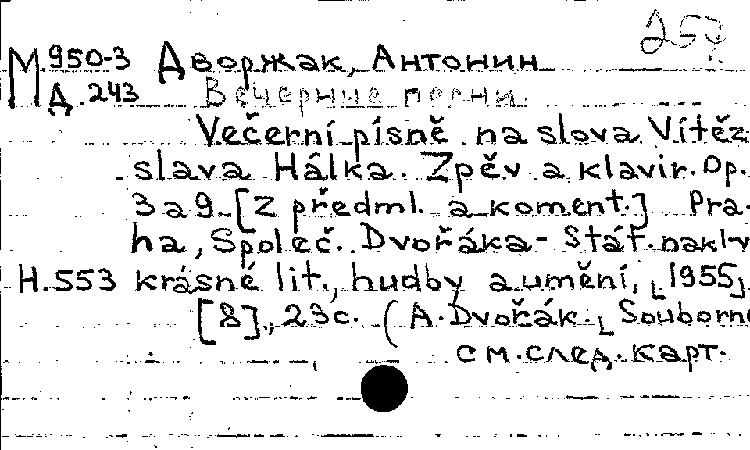 257
М 950-3 Дворжак, Антонин
Д. 243 Вечерние песни.
Večerní písně na slova Vítěz
slava Hálka. Zpěv a klavir. Op.
3 a 9. [Z předml. a koment.] Pra-
ha, Společ. Dvořáka - Stát. nakl-v
H.553 krásné lit., hudby a umění, [1955].
[8], 23 с. (A. Dvořák. [Souborné
см. след. карт.